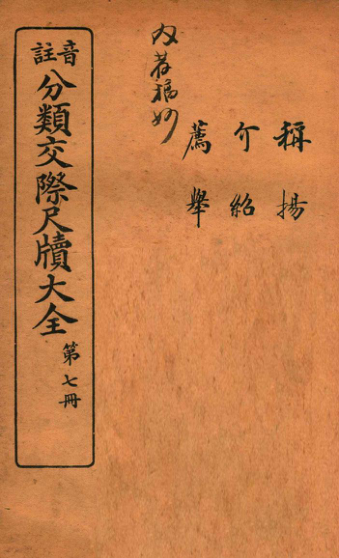 稱揚
介紹
薦舉
音註
分類交際尺牘大全
第七冊